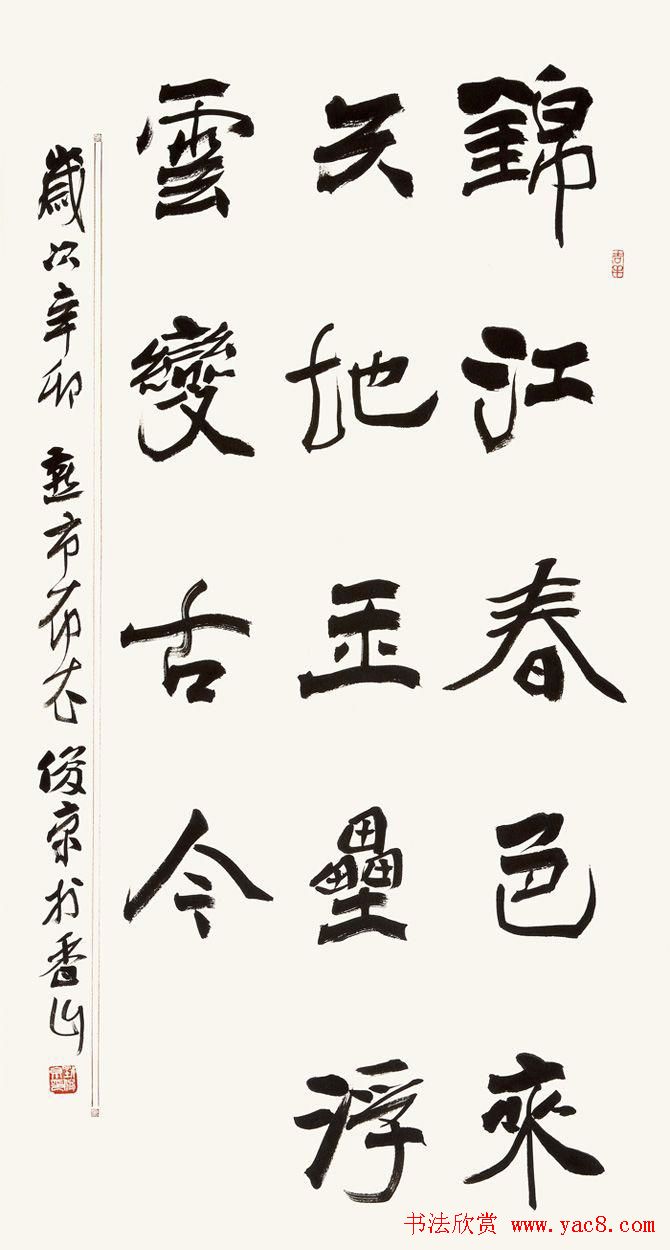 錦江春色來
天地玉壘浮
雲變古今
歲次辛卯 燕市布衣 俊京於香山
书法欣赏 www.yac8.com